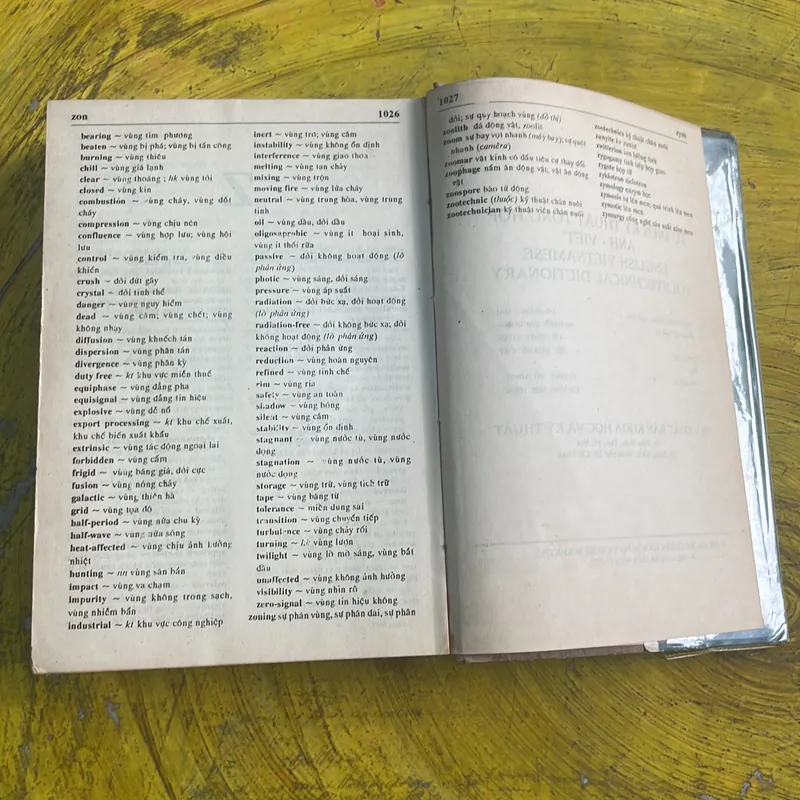 zon 1026
bearing ~ vùng tìm phương
beaten ~ vùng bị phá; vùng bị tấn công
burning ~ vùng thiêu
chill ~ vùng giá lạnh
clear ~ vùng thoáng ; hk vùng tối
closed ~ vùng kín
combustion ~ vùng cháy, vùng đốt
cháy
compression ~ vùng chịu nén
confluence ~ vùng hợp lưu; vùng hội
lưu
control ~ vùng kiểm tra, vùng điều
khiển
crush ~ đới đứt gãy
crystal ~ đới tinh thể
danger ~ vùng nguy hiểm
dead ~ vùng câm; vùng chết; vùng
không nhạy
diffusion ~ vùng khuếch tán
dispersion ~ vùng phân tán
divergence ~ vùng phân kỳ
duty free ~ kt khu vực miễn thuế
equiphase ~ vùng đẳng pha
equisignal ~ vùng đẳng tín hiệu
explosive ~ vùng dễ nổ
export processing ~ kt khu chế xuất,
khu chế biến xuất khẩu
extrinsic ~ vùng tác động ngoại lai
forbidden ~ vùng cấm
frigid ~ vùng băng giá, đới cực
fusion ~ vùng nóng chảy
galactic ~ vùng thiên hà
grid ~ vùng tọa độ
half-period ~ vùng nửa chu kỳ
half-wave ~ vùng nửa sóng
heat-affected ~ vùng chịu ảnh hưởng
nhiệt
hunting ~ nn vùng săn bắn
impact ~ vùng va chạm
impurity ~ vùng không trong sạch,
vùng nhiễm bẩn
industrial ~ kt khu vực công nghiệp
inert ~ vùng trơ; vùng câm
instability ~ vùng không ổn định
interference ~ vùng giao thoa
melting ~ vùng tan chảy
mixing ~ vùng trộn
moving fire ~ vùng lửa cháy
neutral ~ vùng trung hòa, vùng trung
tính
oil ~ vùng dầu, đới dầu
oligosaprobic ~ vùng ít hoại sinh,
vùng ít thối rữa
passive ~ đới không hoạt động (lò
phản ứng)
photic ~ vùng sáng, đới sáng
pressure ~ vùng áp suất
radiation ~ đới bức xạ, đới hoạt động
(lò phản ứng)
radiation-free ~ đới không bức xạ; đới
không hoạt động (lò phản ứng)
reaction ~ đới phản ứng
reduction ~ vùng hoàn nguyên
refined ~ vùng tinh chế
rim ~ vùng rìa
safety ~ vùng an toàn
shadow ~ vùng bóng
silent ~ vùng câm
stability ~ vùng ổn định
stagnant ~ vùng nước tù, vùng nước
đọng
stagnation ~ vùng nước tù, vùng
nước đọng
storage ~ vùng trữ, vùng tích trữ
tape ~ vùng băng từ
tolerance ~ miền dung sai
transition ~ vùng chuyển tiếp
turbulence ~ vùng chảy rối
turning ~ hk vùng lượn
twilight ~ vùng lờ mờ sáng, vùng bắt
đầu
unaffected ~ vùng không ảnh hưởng
visibility ~ vùng nhìn rõ
zero-signal ~ vùng tín hiệu không
zoning sự phân vùng, sự phân đai, sự phân
1027
đới; sự quy hoạch vùng (đô thị)
zoolith đá động vật, zoolit
zoom sự bay vọt nhanh (máy bay); sự quét
nhanh (camêra)
zoomar vật kính có dấu tiêu cự thay đổi
zoophage nấm ăn động vật; vật ăn động
vật
zoospore bào tử động
zootechnic (thuốc) kỹ thuật chăn nuôi
zootechnicjan kỹ thuật viên chăn nuôi
zootechnics kỹ thuật chăn nuôi
zwitterion ion lưỡng tính
zygote hợp tử
zymology enzym học